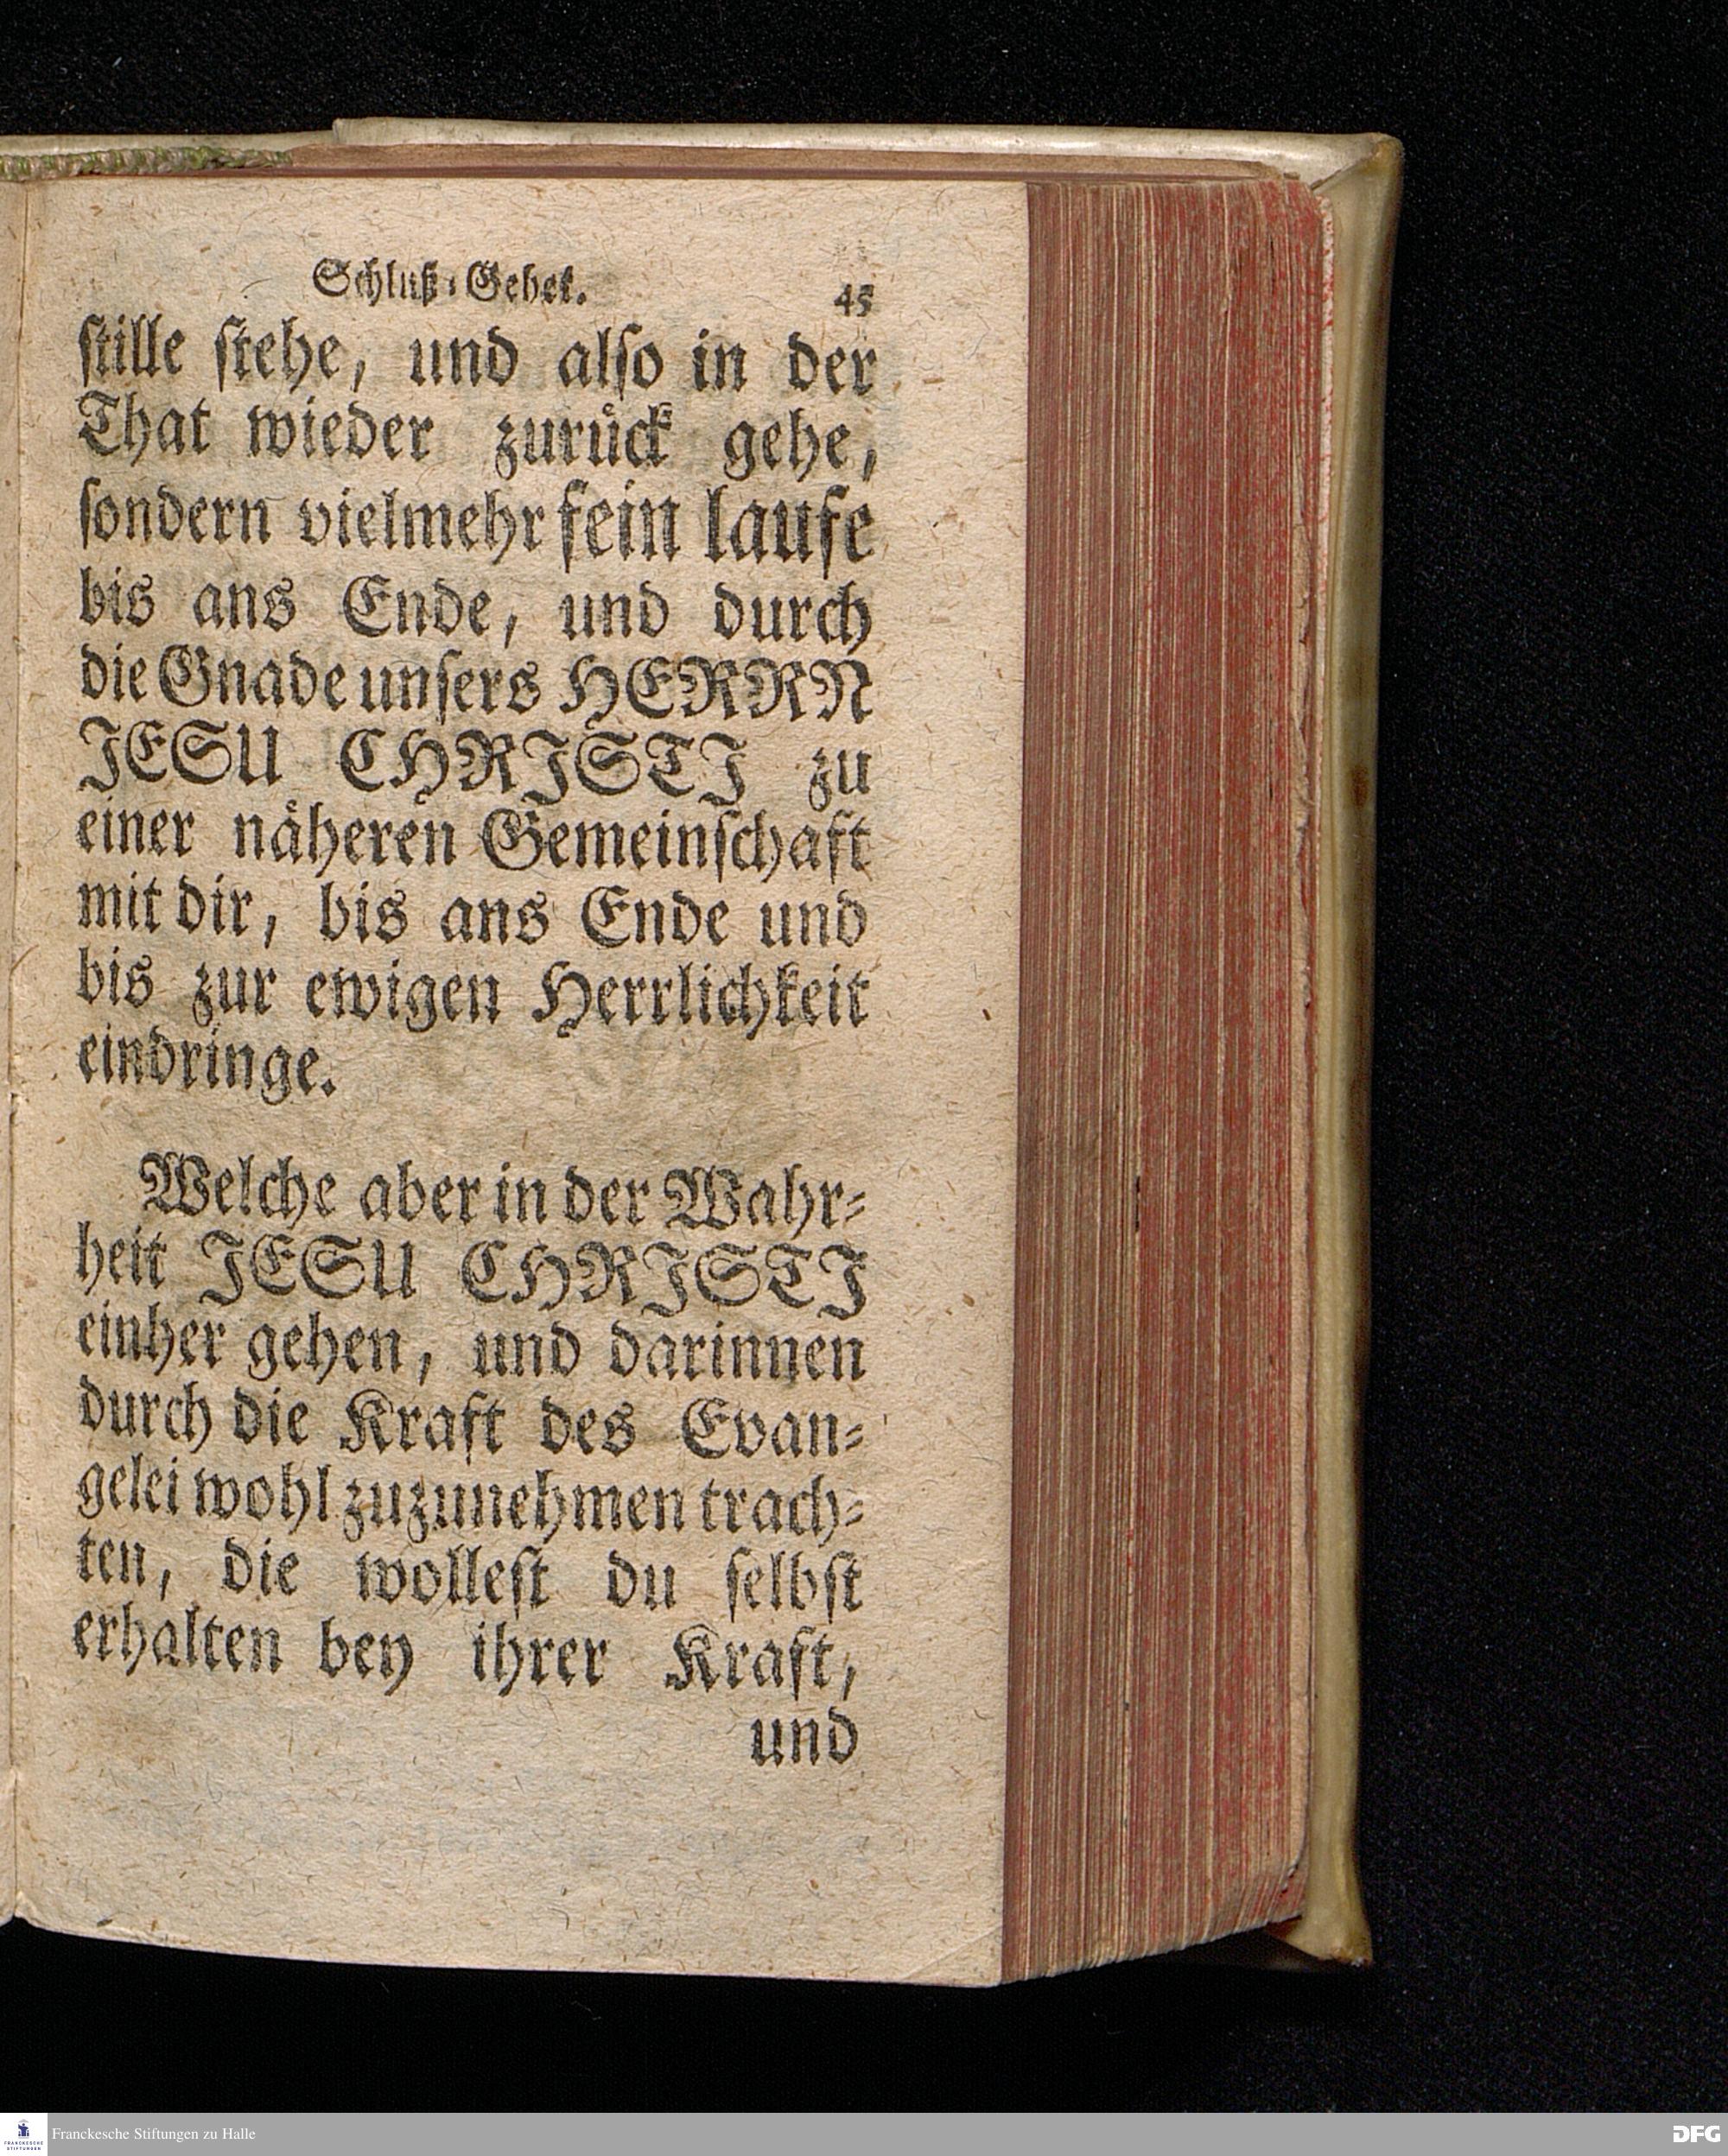 Schluß-Gebet. 45
ſtille ſtehe, und alſo in der
That wieder zuruͤck gehe,
ſondern vielmehr fein laufe
bis ans Ende, und durch
die Gnade unſers HERRN
JESU CHRISTJ zu
einer naͤheren Gemeinſchaft
mit dir, bis ans Ende und
bis zur ewigen Herrlichkeit
eindringe.
Welche aber in der Wahr-
heit JESU CHRISTJ
einher gehen, und darinnen
durch die Kraft des Evan-
gelei wohl zuzunehmen trach-
ten, die wolleſt du ſelbſt
erhalten bey ihrer Kraft,
und
Franckesche Stiftungen zu Halle
FRANCKESCHE
STIFTUNGEN
DFG